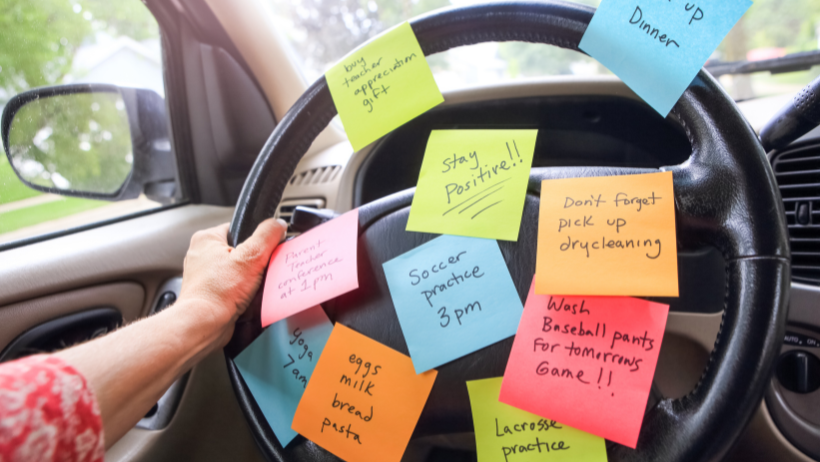 up
Dinner
buy
teacher
appreciation
gift
Stay
Positive!!
Don't forget
pick up
drycleaning
Parent
Teacher
conference
at 1pm
Soccer
practice
3pm
Wash
Baseball pants
For tomorrows
Game!!
Yoga
7am
eggs
milk
bread
pasta
Lacrosse
practice